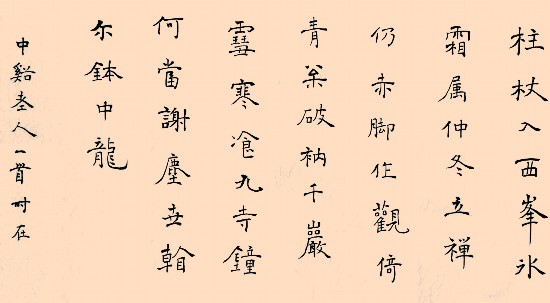 柱杖入西峯氷
霜属仲冬立禅
仍赤脚作觀倚
青筇破衲千巖
雪寒飡九寺鐘
何當謝塵世翰
尔鉢中龍
中谿老人一首时在